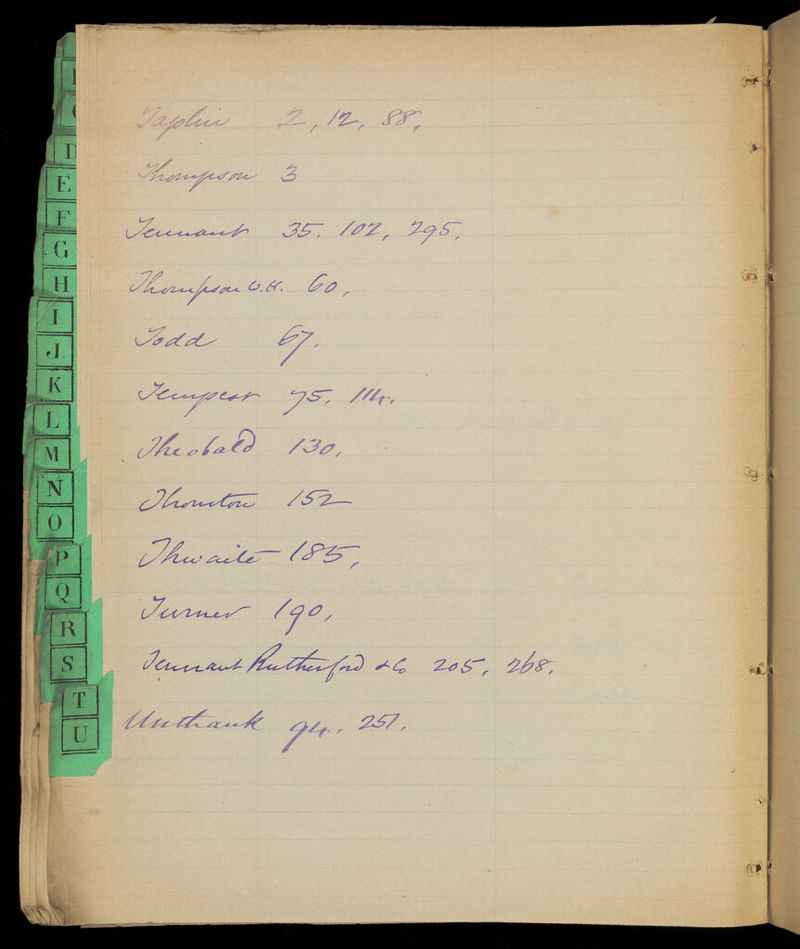 Taplin 2, 12, 88,
Thompson 3
Tennant 35. 102, 295.
Thompson W.H. 60,
Todd 67.
Tempest 75. 114.
Theobald 130,
Thornton 152
Thwaite 185,
Turner 190,
Tennant Rutherford & Co 205, 268.
Unthank 94., 251.
D
E
F
G
H
I
J
K
L
M
N
O
P
Q
R
S
T
U